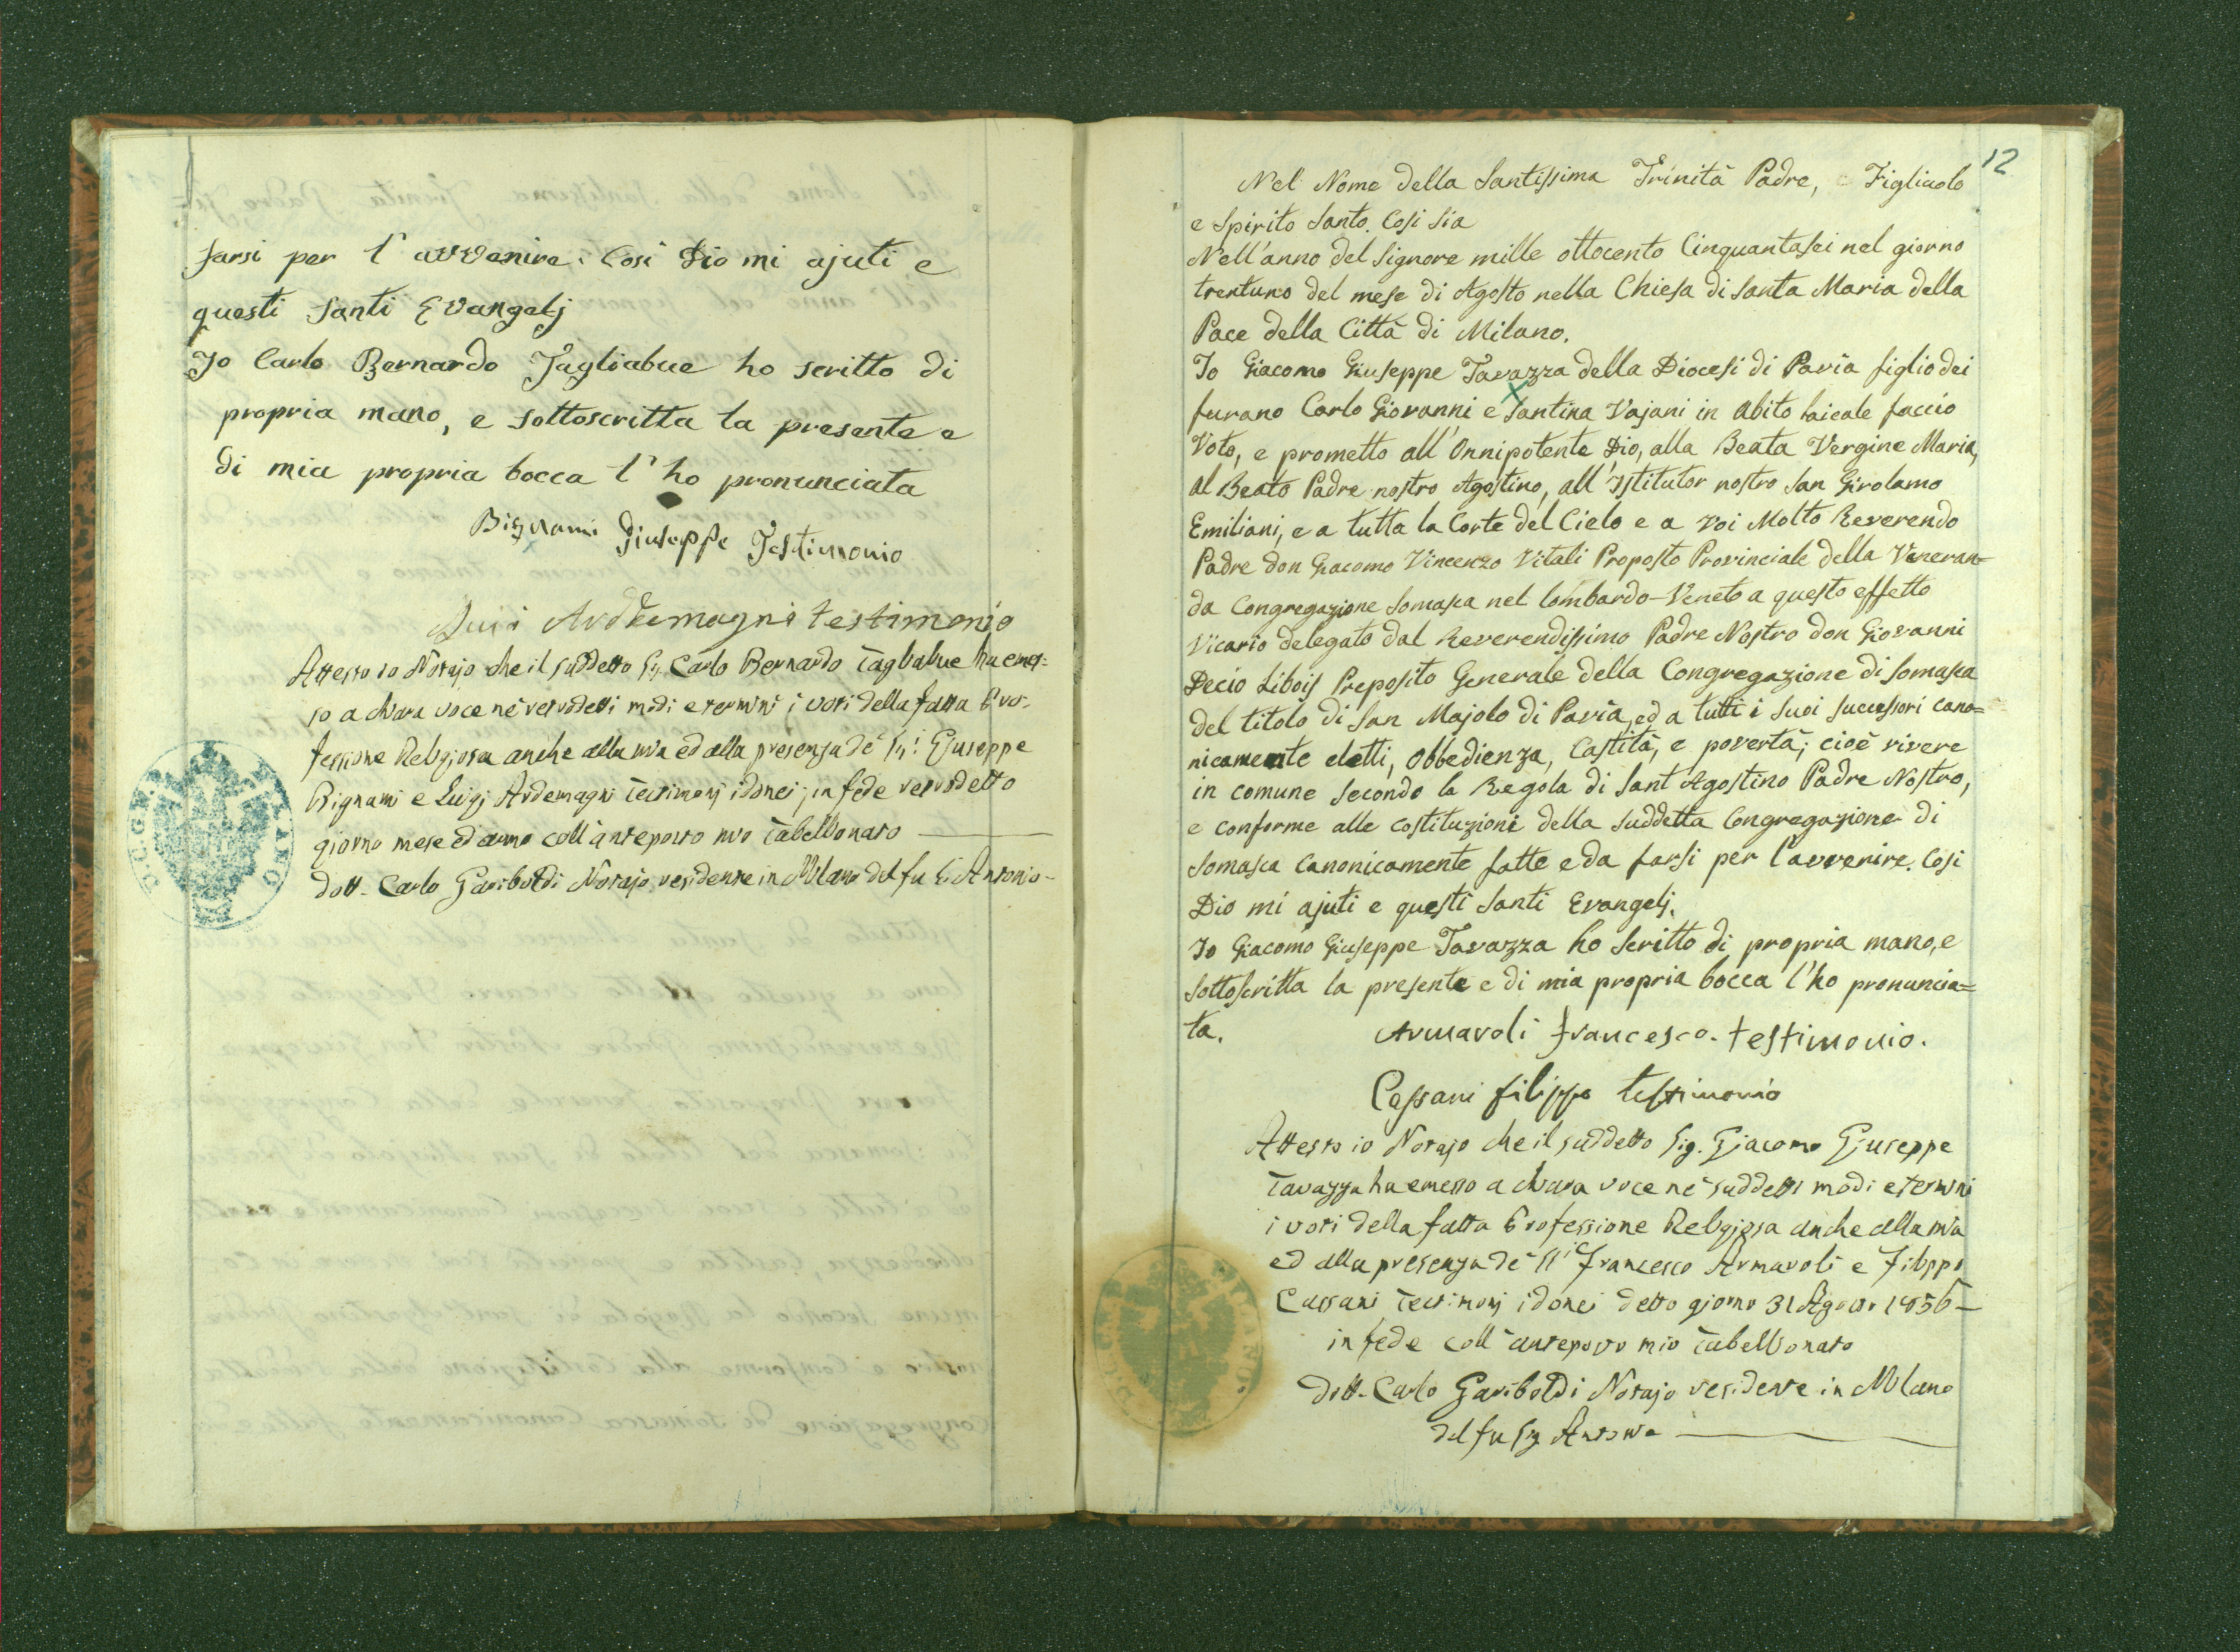 farsi per l'avvenire. Così Dio mi ajuti e
questi Santi Evangelj
Io Carlo Bernardo Tagliabue ho scritto di
propria mano, e sottoscritta la presente e
di mia propria bocca l'ho pronunciata
Bignami Giuseppe Testimonio
Luigi Ardemagni testimonio
Attesto io Notajo che il suddetto Sig. Carlo Bernardo Tagliabue ha emes=
so a chiara voce ne' modi e termini i voti della fatta Pro-
fessione Religiosa anche alla mia ed alla presenza de' Sig.i Giuseppe
Bignami e Luigi Ardemagni Testimonj idonei; in fede
giorno mese ed anno coll'anteposto mio Tabellionato
dott. Carlo Gariboldi Notajo residente in Milano del fu Antonio
12
Nel Nome della Santissima Trinità Padre, e Figliuolo
e Spirito Santo. Così sia
Nell'anno del Signore mille ottocento Cinquantasei nel giorno
trentuno del mese di Agosto nella Chiesa di Santa Maria della
Pace della Città di Milano.
Io Giacomo Giuseppe Tavazza della Diocesi di Pavia figlio dei
furano Carlo Giovanni e Santina Vajani in abito laicale faccio
Voto, e prometto all'Onnipotente Dio, alla Beata Vergine Maria,
al Beato Padre nostro Agostino, all'Istitutor nostro San Girolamo
Emiliani, e a tutta la Corte del Cielo e a Voi Molto Reverendo
Padre don Giacomo Vincenzo Vitali Proposto Provinciale della Veneran=
da Congregazione Somasca nel lombardo-Veneto a questo effetto
Vicario delegato dal Reverendissimo Padre Nostro don Giovanni
Decio Libois Preposito Generale della Congregazione di Somasca
del titolo di San Majolo di Pavia, ed a tutti i suoi successori cano=
nicamente eletti, Obbedienza, Castità, e povertà; cioè vivere
in comune secondo la Regola di Sant Agostino Padre Nostro,
e conforme alle costituzioni della suddetta Congregazione di
Somasca canonicamente fatte e da farsi per l'avvenire. Così
Dio mi ajuti e questi Santi Evangelj.
Io Giacomo Giuseppe Tavazza ho scritto di propria mano, e
sottoscritta la presente e di mia propria bocca l'ho pronuncia=
ta.
Armaroli Francesco. testimonio.
Cassani Filippo testimonio
Attesto io Notajo che il suddetto Sig. Giacomo Giuseppe
Tavazza ha emesso a chiara voce ne' suddetti modi e termini
i voti della fatta Professione Religiosa anche alla mia
ed alla presenza de' SS.i Francesco Armaroli e Filippo
Cassani Testimonj idonei detto giorno 31 Agosto 1856
in fede coll'anteposto mio Tabellionato
dott. Carlo Gariboldi Notajo residente in Milano
del fu Sig. Antonio